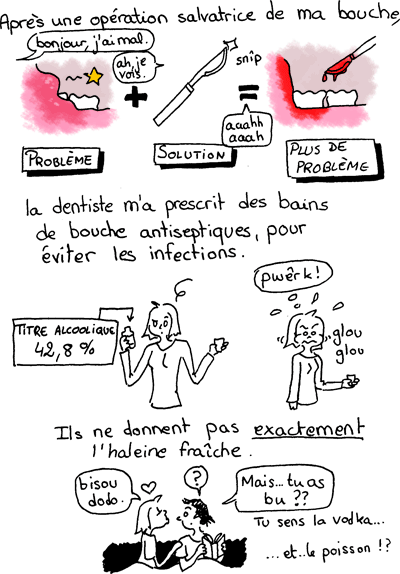 Après une opération salvatrice de ma bouche,
bonjour, j'ai mal.
ah, je
vois.
snîp
+
=
aaahh
aaah
PROBLÈME
SOLUTION
PLUS DE
PROBLÈME
la dentiste m'a prescrit des bains
de bouche antiseptiques, pour
éviter les infections.
TITRE ALCOOLIQUE
42,8 %
pwêrk!
glou
glou
Ils ne donnent pas exactement
l'haleine fraîche.
bisou
dodo.
?
Mais... tu as
bu ??
Tu sens la vodka...
...et..le poisson !?